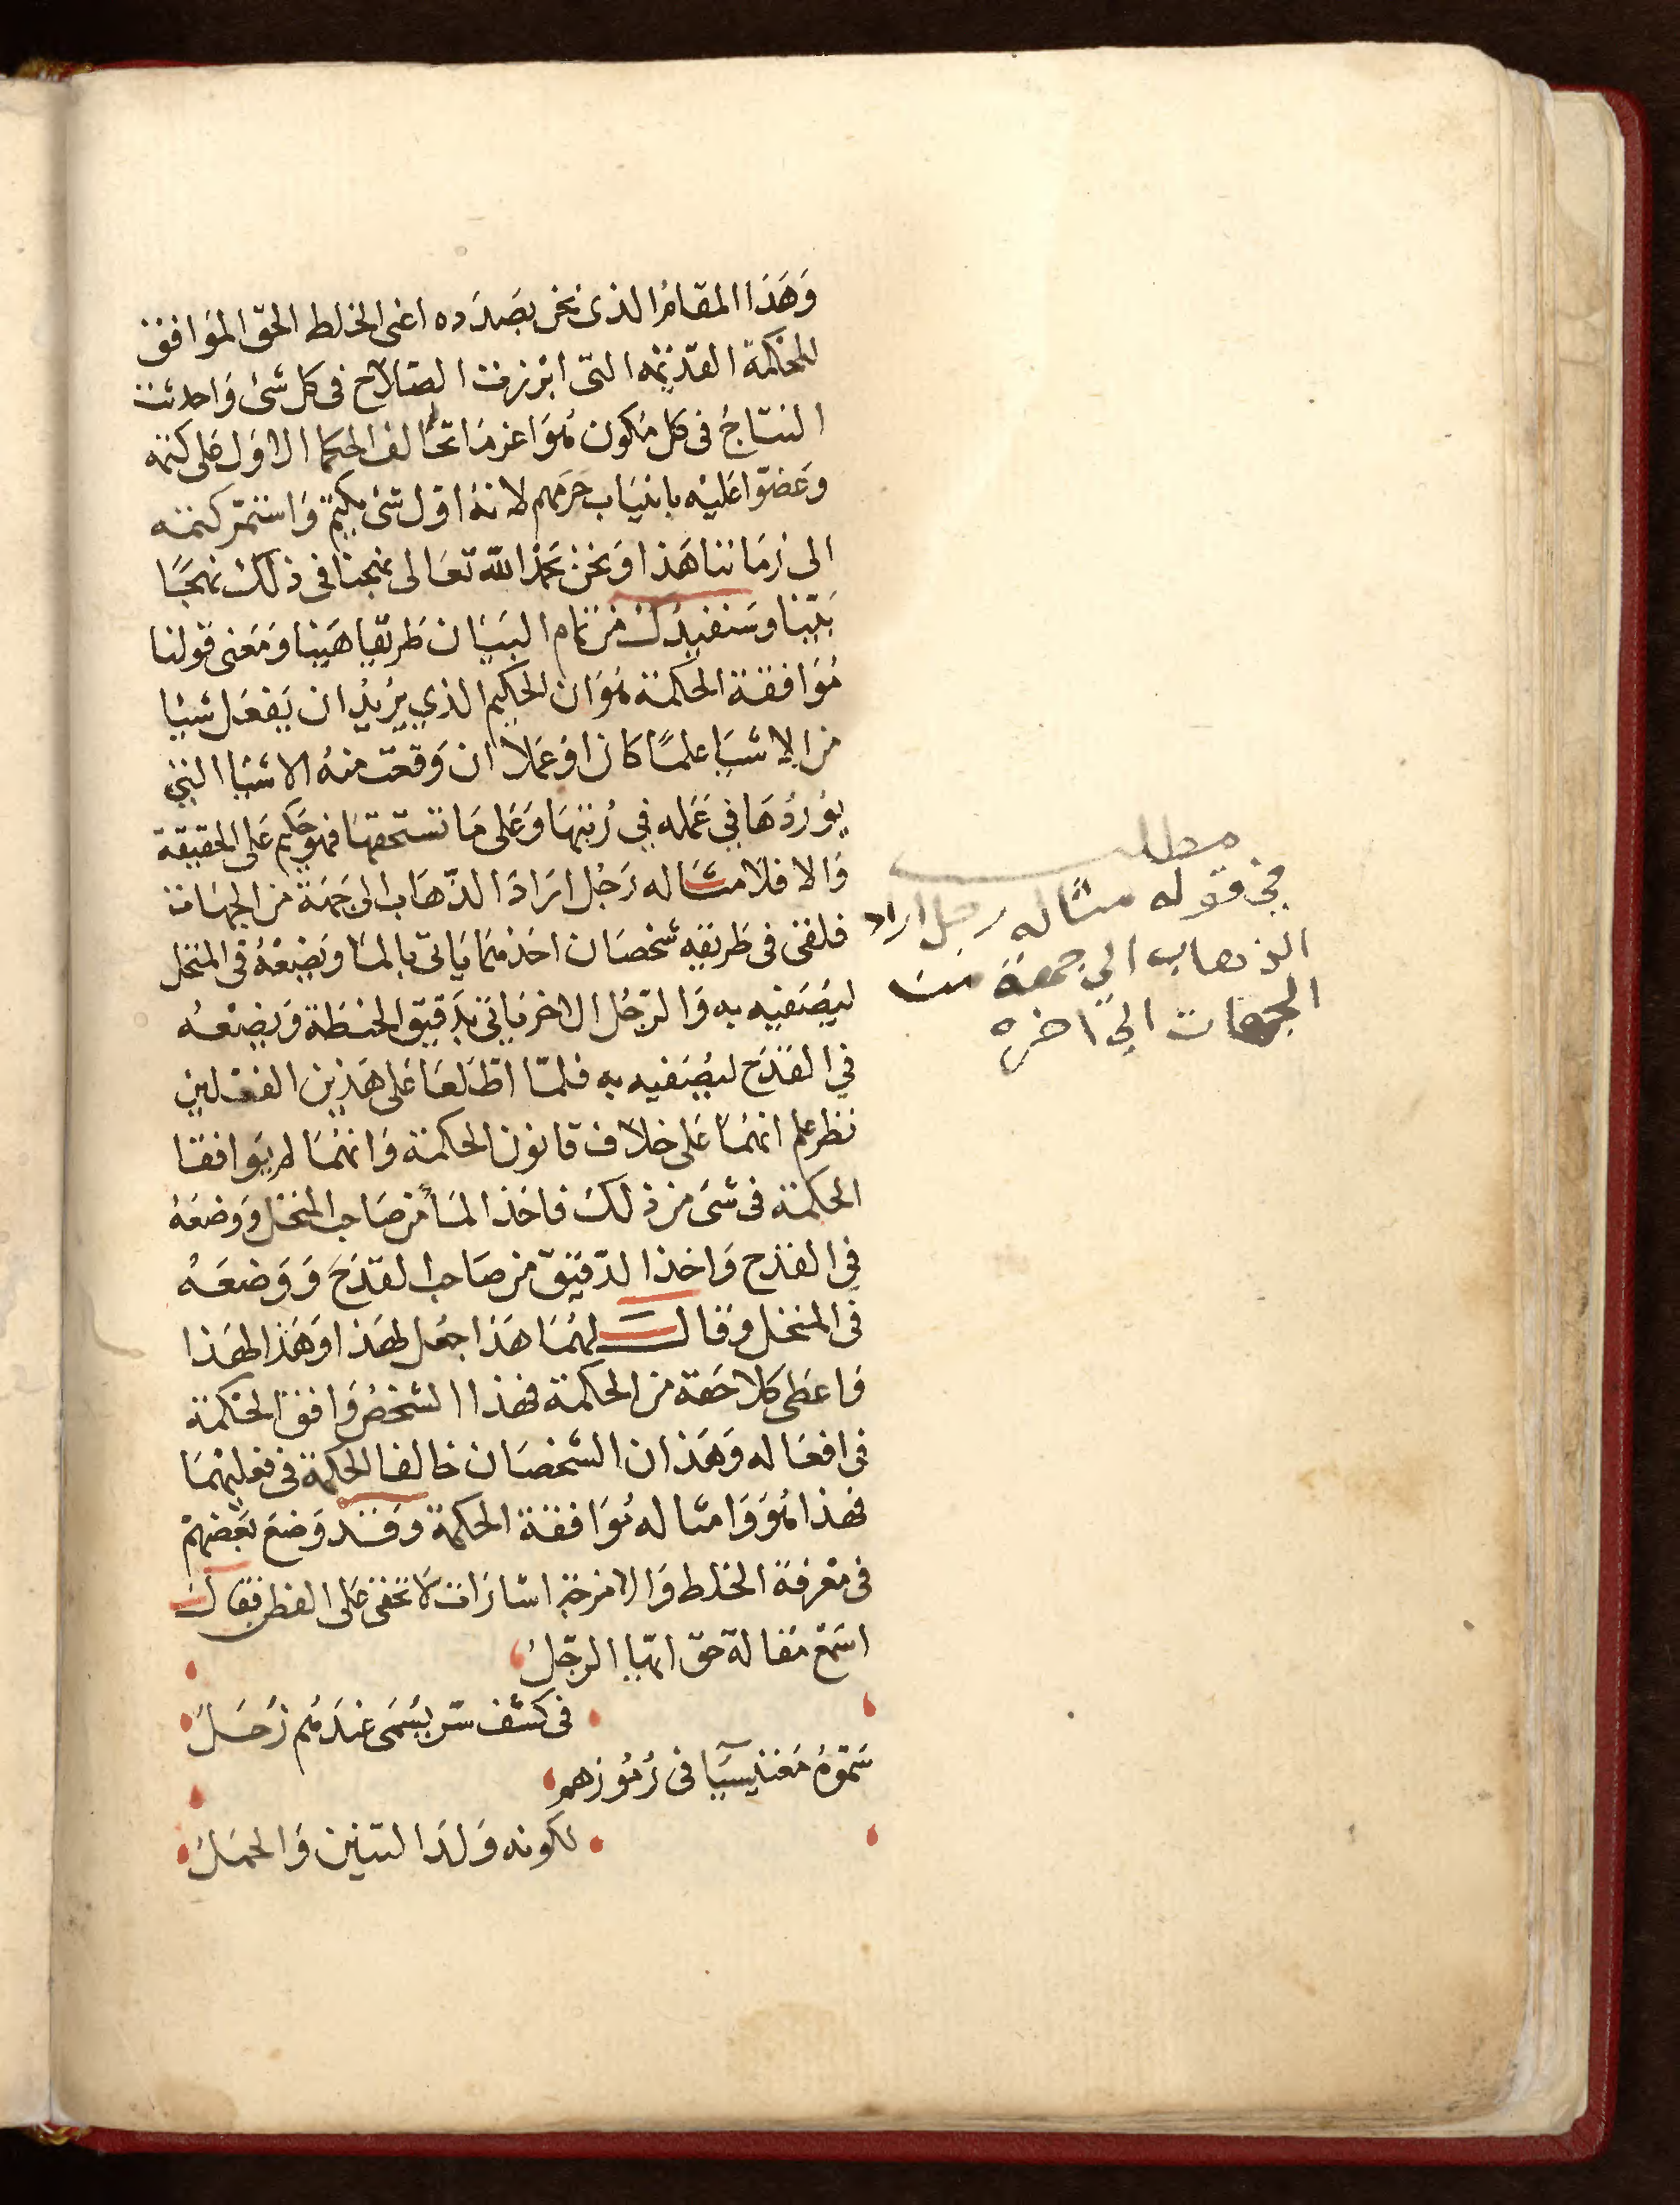 وَهَذَا المقَامُ الذى نحن بصَدَده اعنى الخلط الحق الموَافق
للحكمة القدَيمَه التى ابْرزت الصّلاح فى كل شئ وَاحدثت
النتاج فى كل مُكون هُوَ اعز مَا تحَالف الحكما الاوَل عَلى كتمه
وَعَضّوا عَليْه بانيَاب حَزمهم لانهُ اوّل شئ يكتم وَاستمرّ كتمه
الى زمَاننا هَذا وَنحن بحَمد الله تعَالى نهجنا فى ذلكَ نهجًا
بَيّنا وسَنفيدُك من تمام البيَان طَريقا هَينا وَمَعنى قولنا
مُوَافقة الحكمَة هُوَ ان الحكيم الذي يرُيدُ ان يَفعَل شيئا
من الاشيَا علمًا كان اوْ عَملا ان وَقعَت منهُ الاشيَا التي
يوُردُهَا في عَمَله في رُتبتهَا وَعَلى مَا تستحقهَا فهوَ حَكيم عَلى الحقيقة
وَالا فلا مثَاله رَجُل ارَادَ الذّهَاب الى جهَة من الجهَات
فلقى فى طَريقه شخصَان احَدهمَا يَاتى بالمَا وَيضَعْهُ فى المنخل
ليصَفيه به وَالرّجُل الاخر يَاتى بدَقيق الحنطَة وَيضَعْهُ
في القدَح ليصَفيه به فلمّا اطّلعَا عَلى هَذين الفعْلين
نظر علم انهمَا عَلى خلاف قانون الحكمَة وَانهُمَا لم يوَافقا
الحكمَة فى شىَ من ذلكَ فاخَذ المَاء من صَاحب المنخل وَوضعَهُ
في القدَح وَاخذ الدّقيق من صَاحب القدَح وَوَضعَهُ
فى المنخل وقال لهُمَا هَذا جعل لهَذا وَهَذا لهَذا
وَاعطى كلا حَقه من الحكمة فهذا الشخص وَافق الحكمة
فى افعَاله وَهَذان الشخصَان خالفا الحكمة فى فعليْهمَا
فهذا هُوَ وَامثاله مُوَافقة الحكمة وَقد وَضعَ بَعضهمْ
فى مَعْرفة الخلط وَالامزجَة اشارَات لا تخفى عَلى الفطن فقال
اسَمْع مَقالة حق ايّها الرّجُل
فى كشف سرّ يسُمَى عندَهُم زُحَل
سَمّوهُ مَغنيسيَا فى رُمُوزهم
لكونه وَلدَ التنين وَالحمَل
مطلب
في قوله مثاله رجل اراد
الذهاب الى جهة من
الجهات الي اخره